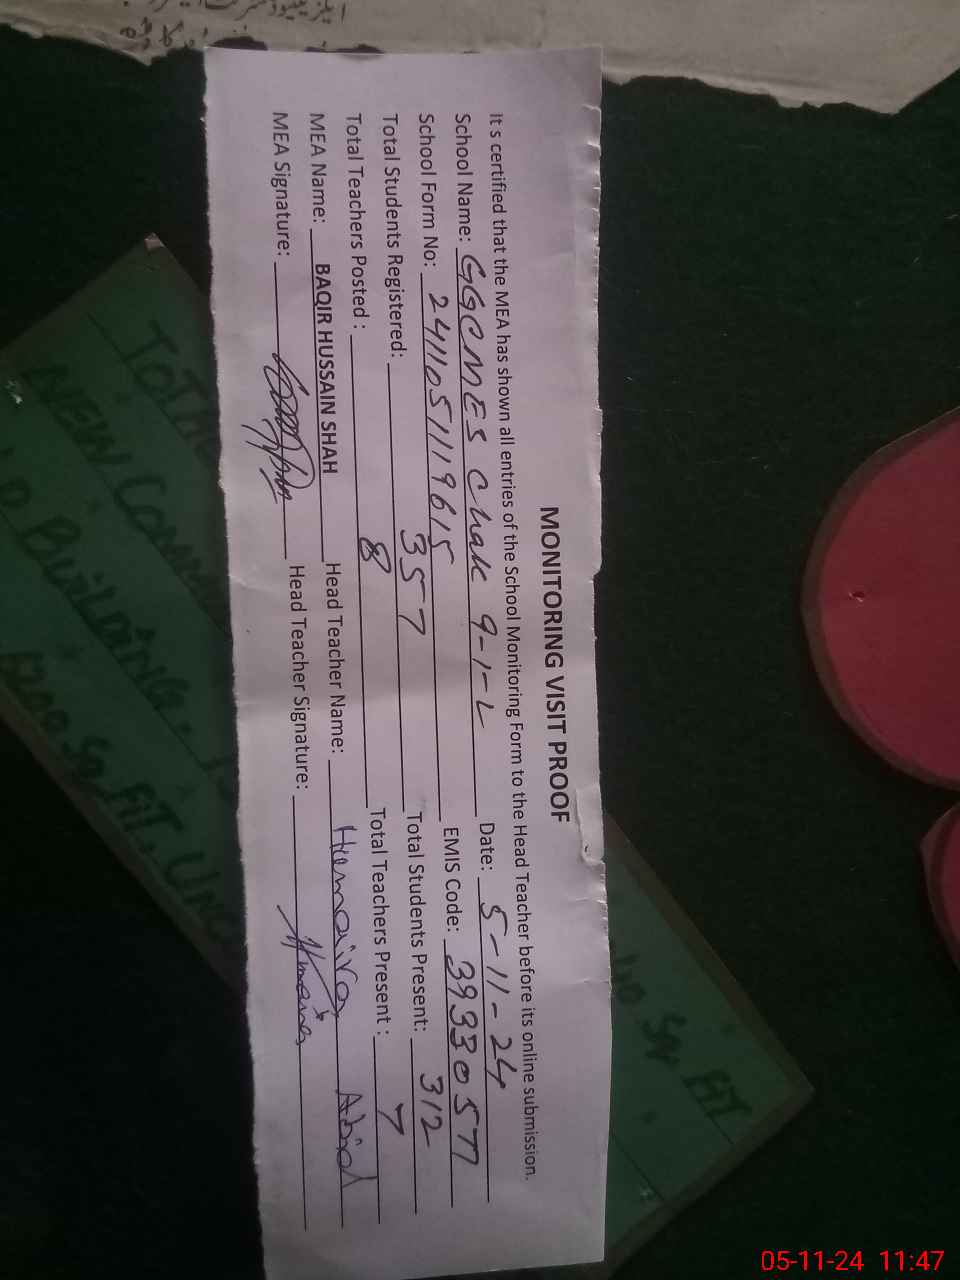 MONITORING VISIT PROOF
It s certified that the MEA has shown all entries of the School Monitoring Form to the Head Teacher before its online submission.
School Name: GGCMES Chak 9-1-L Date: 5-11-24
School Form No: 24110511119615 EMIS Code: 39330577
Total Students Registered: 357 Total Students Present: 312
Total Teachers Posted : 8 Total Teachers Present : 7
MEA Name: BAQIR HUSSAIN SHAH Head Teacher Name: Humaira Abid
MEA Signature: Head Teacher Signature: Humaira
NEW
BUILDING
Sq. FIT.
Sq. FIT
05-11-24 11:47